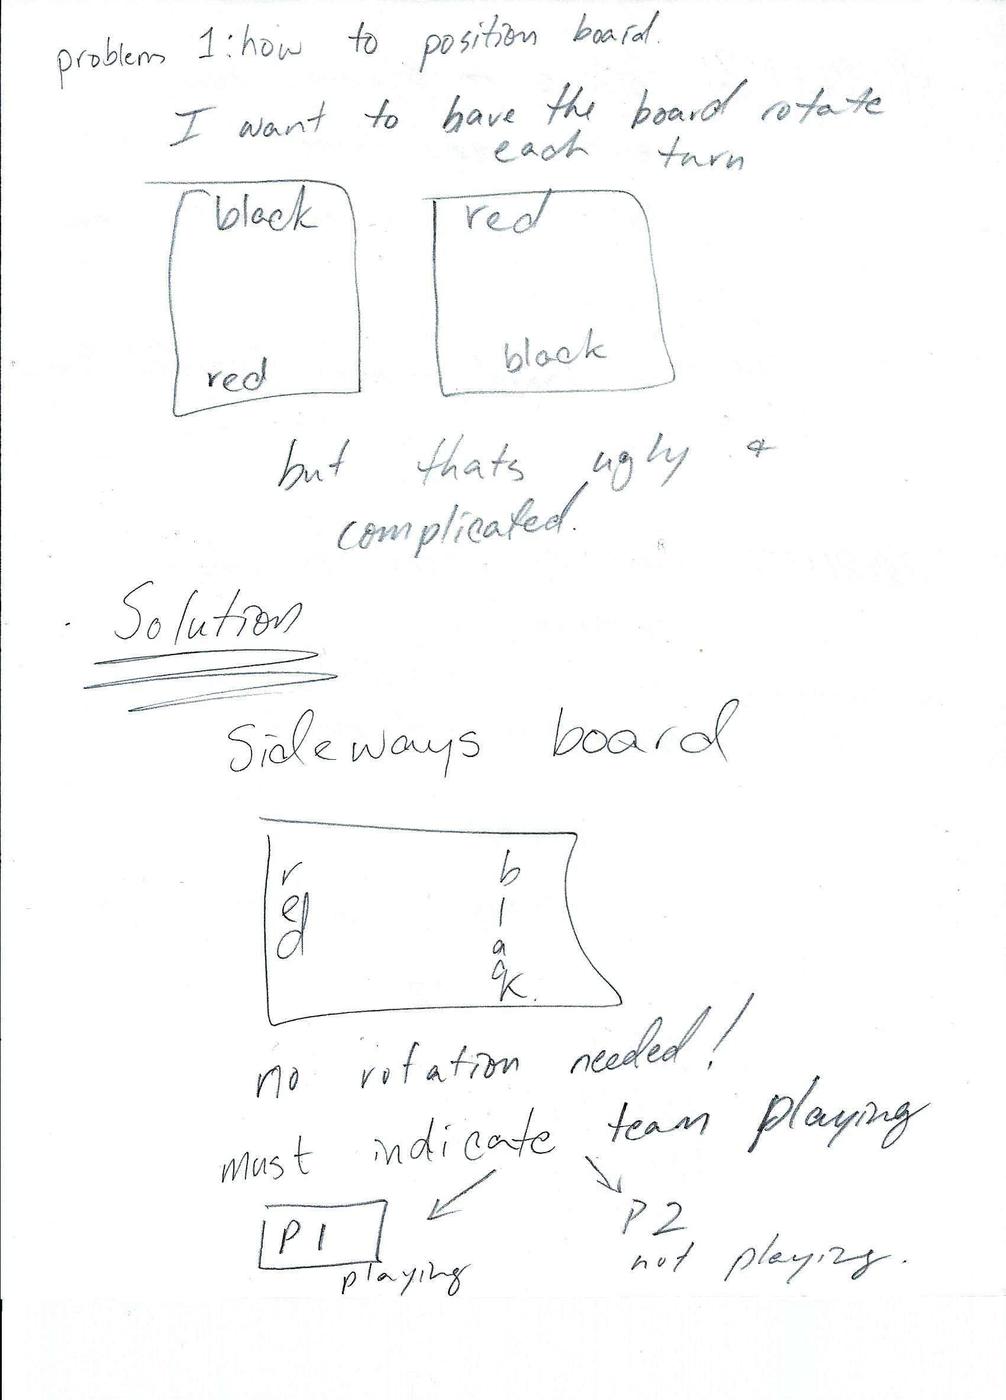 problem 1: how to position board.
I want to have the board rotate
each turn
black
red
red
black
but thats ugly &
complicated.
Solution
Sideways board
red
black.
no rotation needed!
must indicate team playing
P1
playing
P2
not playing.